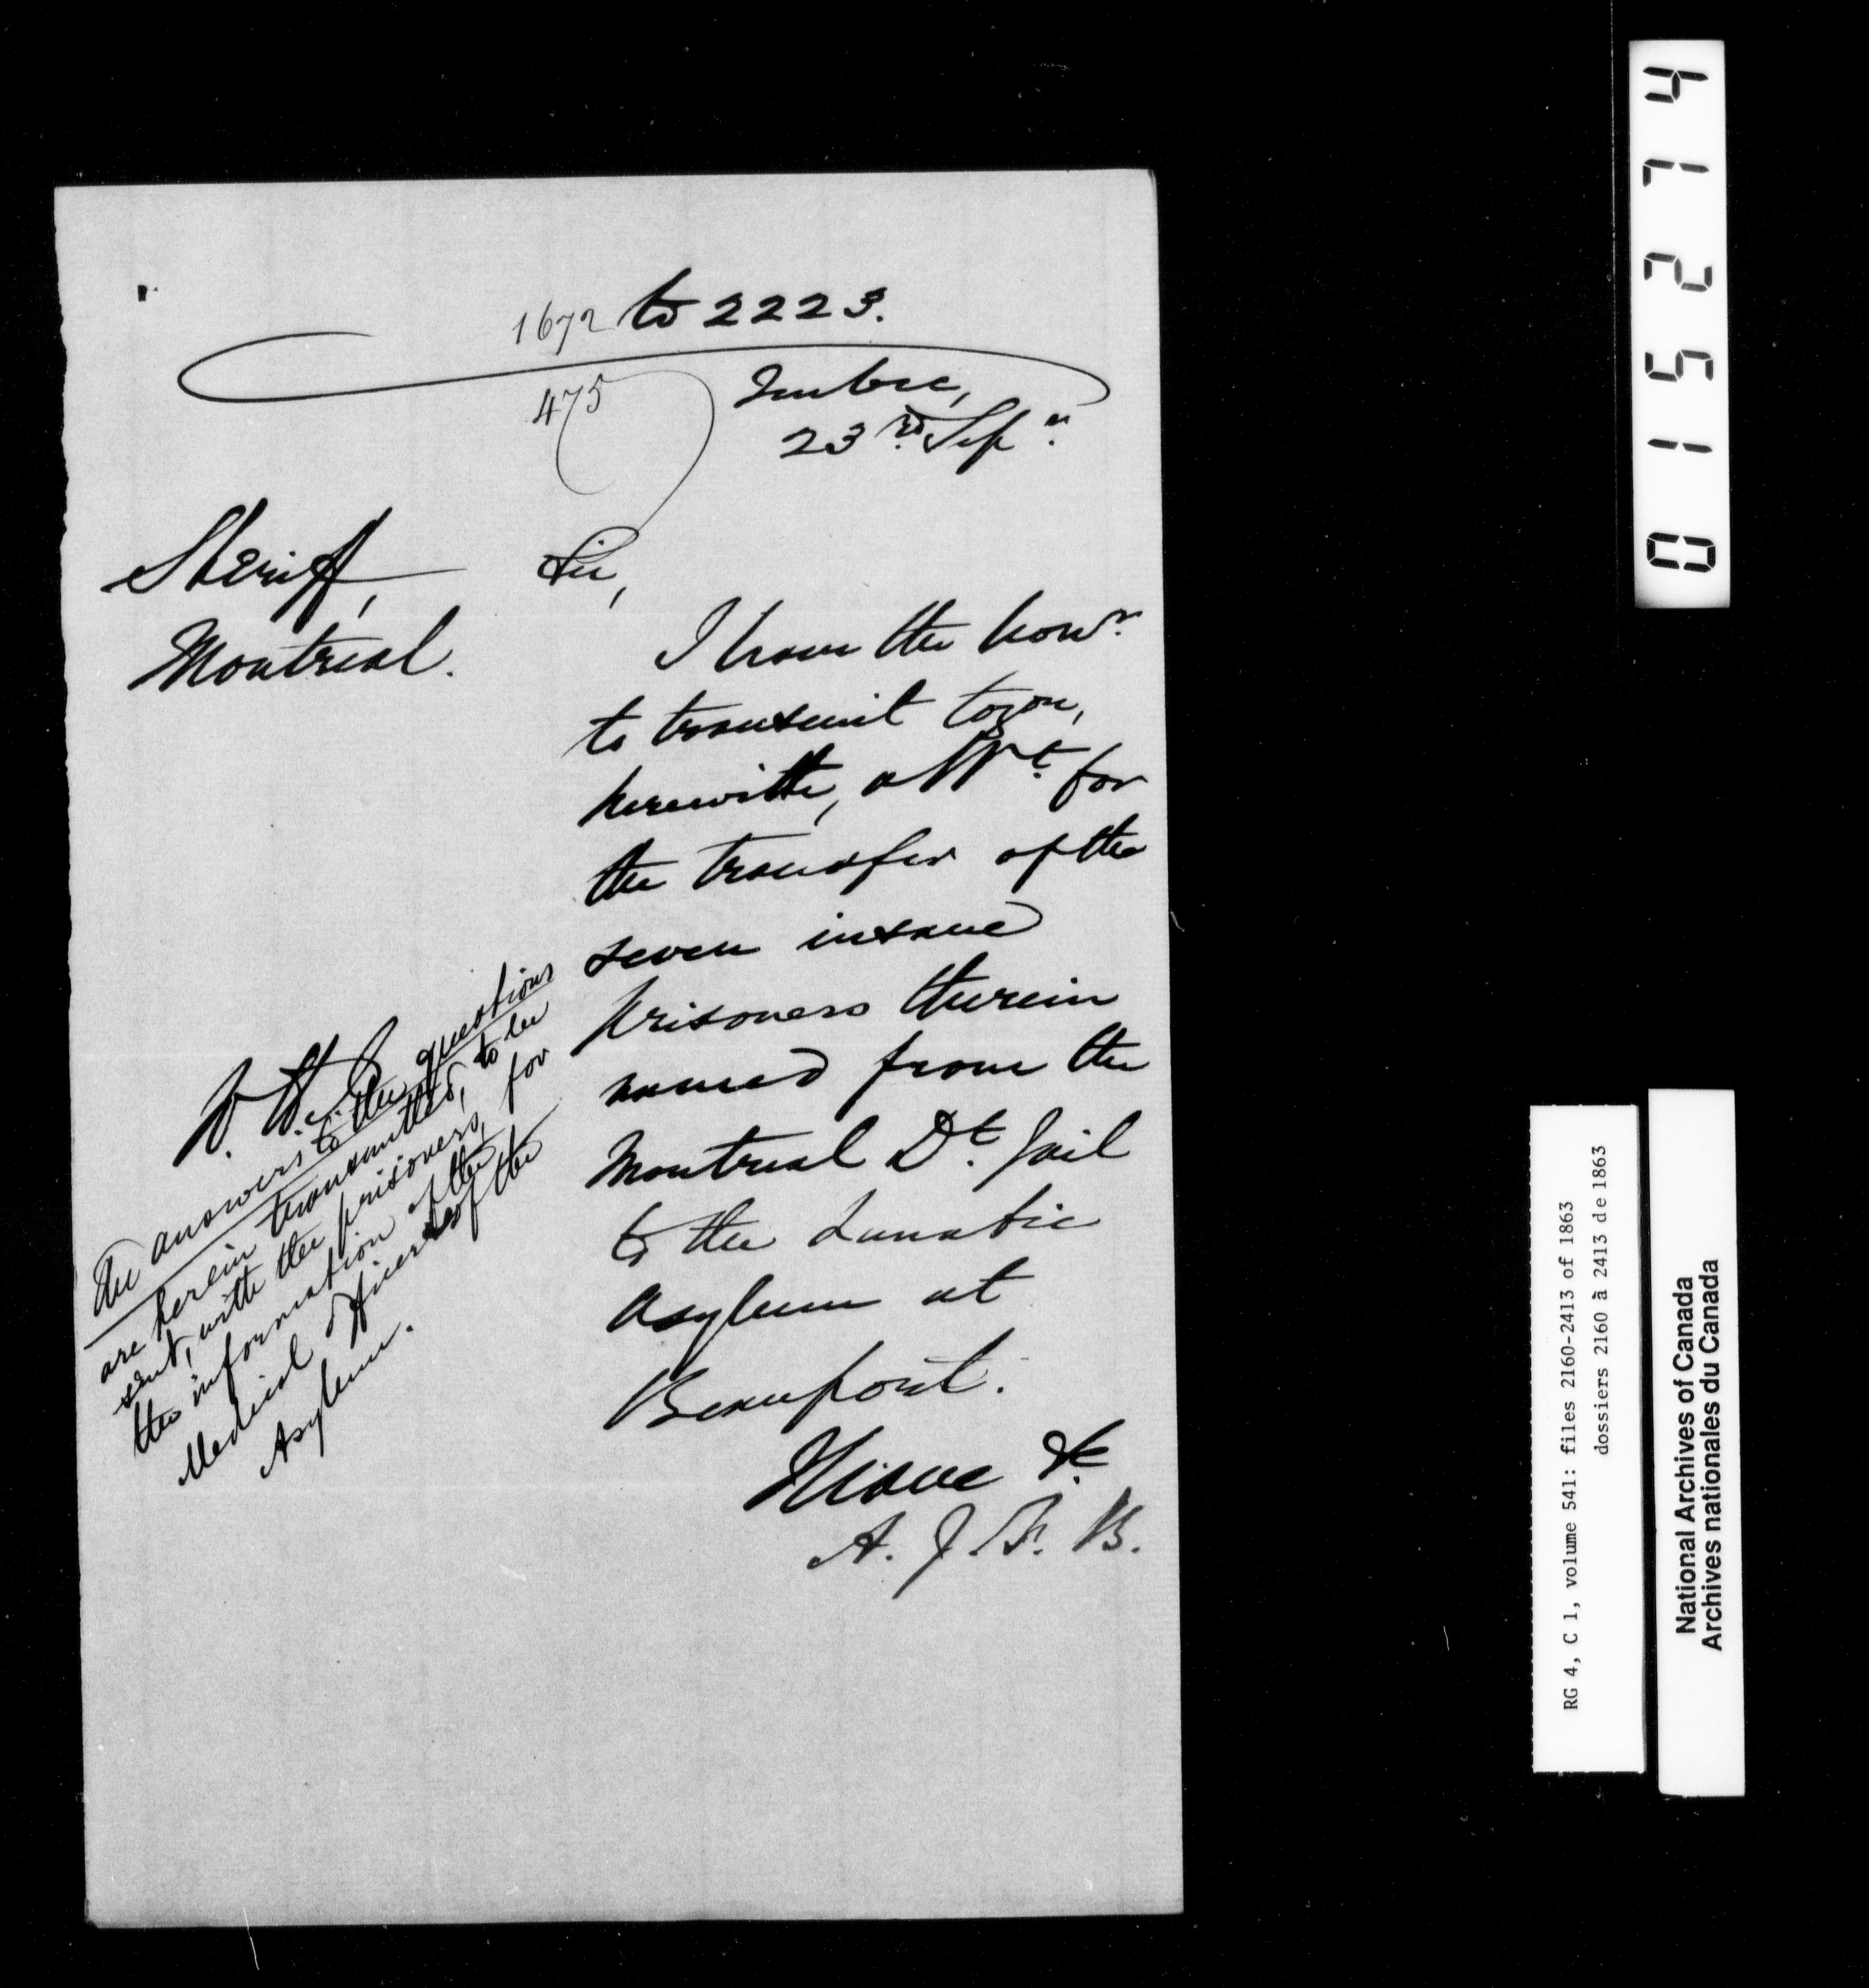 1672 to 2223.
475
Quebec,
23rd Sepr.
Sheriff,
Montreal.
Sir,
I have the honr.
to transmit to you,
herewith, a Wt. for
the transfer of the
seven insane
prisoners therein
named from the
Montreal Dt. Jail
to the Lunatic
Asylum at
Beauport.
I have &c
A. J. F. B.
The answers to the questions
are herein transmitted, to be
sent, with the prisoners, for
the information of the
Medical Officers of the
Asylum.
015274
RG 4, C 1, volume 541: files 2160-2413 of 1863
dossiers 2160 à 2413 de 1863
National Archives of Canada
Archives nationales du Canada